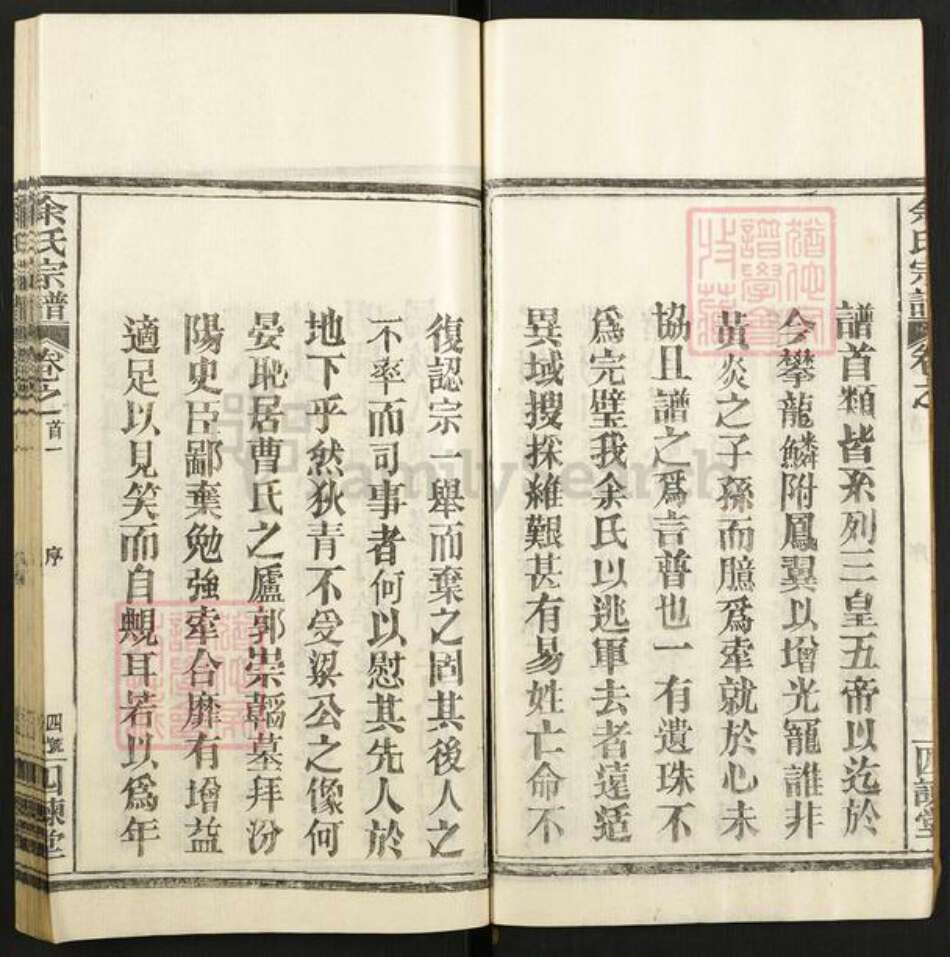 余氏宗譜
卷之
四諫堂
譜首類皆系列三皇五帝以迄於
今攀龍鱗附鳳翼以增光寵誰非
黃炎之子孫而臆爲牽就於心未
協且譜之爲言普也一有遺珠不
爲完璧我余氏以逃軍去者遠适
異域搜探維艱甚有易姓亡命不
復認宗一舉而棄之固其後人之
不率而司事者何以慰其先人於
地下乎然狄青不受梁公之像何
晏恥居曹氏之廬郭崇韜墓拜汾
陽史臣鄙棄勉強牽合靡有增益
適足以見笑而自覥耳若以爲年
余氏宗譜
卷之首一
序
四號
四諫堂
FamilySearch